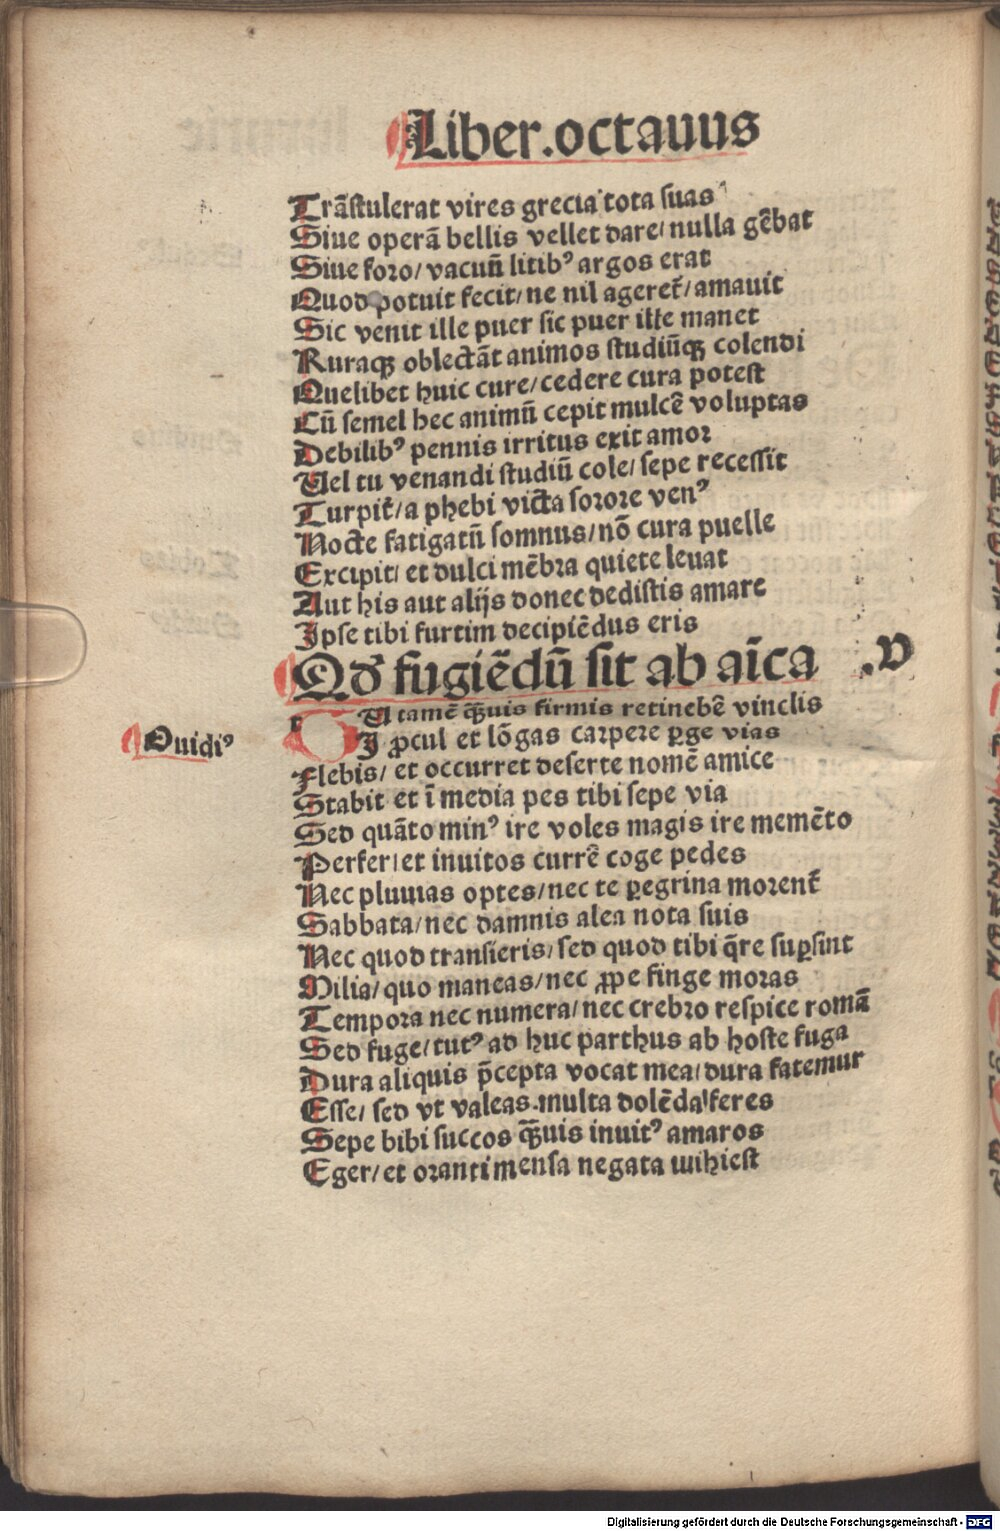 Liber.octauus
Trãstulerat vires grecia tota suas
Siue operã bellis vellet dare/ nulla gẽbat
Siue foro/ vacuũ litibꝰ argos erat
Quod potuit fecit/ ne nil ageret̃/ amauit
Sic venit ille puer sic puer ille manet
Ruraqꝫ oblectãt animos studiũqꝫ colendi
Quelibet huic cure/ cedere cura potest
Cũ semel hec animũ cepit mulcẽ voluptas
Debilibꝰ pennis irritus exit amor
Uel tu venandi studiũ cole/ sepe recessit
Turpit̃/ a phebi victa sorore venꝰ
Nocte fatigatũ somnus/ nõ cura puelle
Excipit/ et dulci mẽbra quiete leuat
Aut his aut alijs donec dedistis amare
Ipse tibi furtim decipiẽdus eris
Qđ fugiẽdũ sit ab aĩca .V
r U tamẽ q̃uis firmis retinebẽ vinclis
Ouidiꝰ
I ꝓcul et lõgas carpere ꝑge vias
Flebis/ et occurret deserte nomẽ amice
Stabit et ĩ media pes tibi sepe via
Sed quãto minꝰ ire voles magis ire memẽto
Perfer/ et inuitos currẽ coge pedes
Nec pluuias optes/ nec te ꝑegrina morent̃
Sabbata/ nec damnis alea nota suis
Nec quod transieris/ sed quod tibi q̃re suꝑsint
Milia/ quo maneas/ nec ꝓpe finge moras
Tempora nec numera/ nec crebro respice romã
Sed fuge/ tutꝰ ad huc parthus ab hoste fuga
Dura aliquis p̃cepta vocat mea/ dura fatemur
Esse/ sed vt valeas.multa dolẽda feres
Sepe bibi succos q̃uis inuitꝰ amaros
Eger/ et oranti mensa negata mihi est
Digitalisierung gefördert durch die Deutsche Forschungsgemeinschaft - DFG